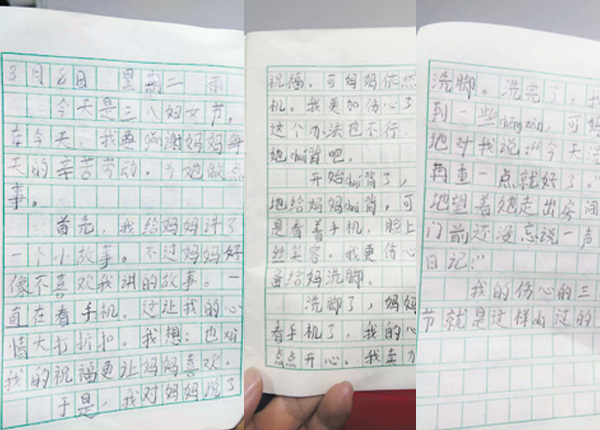 3月8日 星期二 雨
今天是三八妇女节，
在今天，我要gǎn谢妈妈每
天的辛苦劳动。为她做点
事。
首先，我给妈妈讲了
一个小故事。不过妈妈好
像不喜欢我讲的故事。一
直在看手机。这让我的心
情大打折扣。我想：也
我的祝福更让妈妈喜欢。
于是，我对妈妈说了
祝福。可妈妈依然
机。我更加伤心了
这个办法也不行，
她chuí背吧。
开始chuí背了，
地给妈妈chuí背。可
是看着手机，脸上
丝笑容。我更伤心
备给妈洗脚。
洗脚了，妈妈
看手机了，我的心
点点开心。我卖力
洗脚。洗完了，我
到一些xīn，可妈
地对我说：“今天洗
再重一点就好了。”
地望着她走出房间
门前还没忘说一声
日记：”
我的伤心的三
节就是这样过的